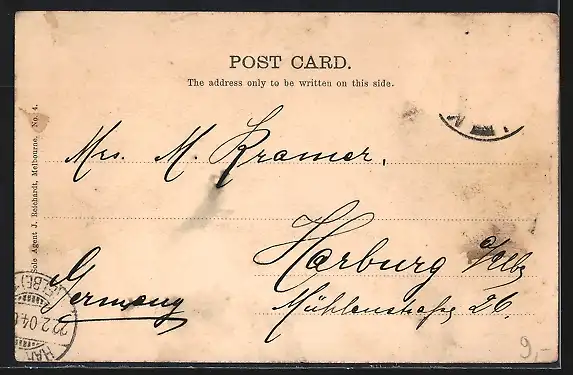 POST CARD.
The address only to be written on this side.
Sole Agent J. Reichardt, Melbourne. No. 4.
Mrs. M. Kramer,
Harburg a/Elbe
Mühlenstraße 26.
Germany
HAR
(ELBE)
22.2.04
9,-